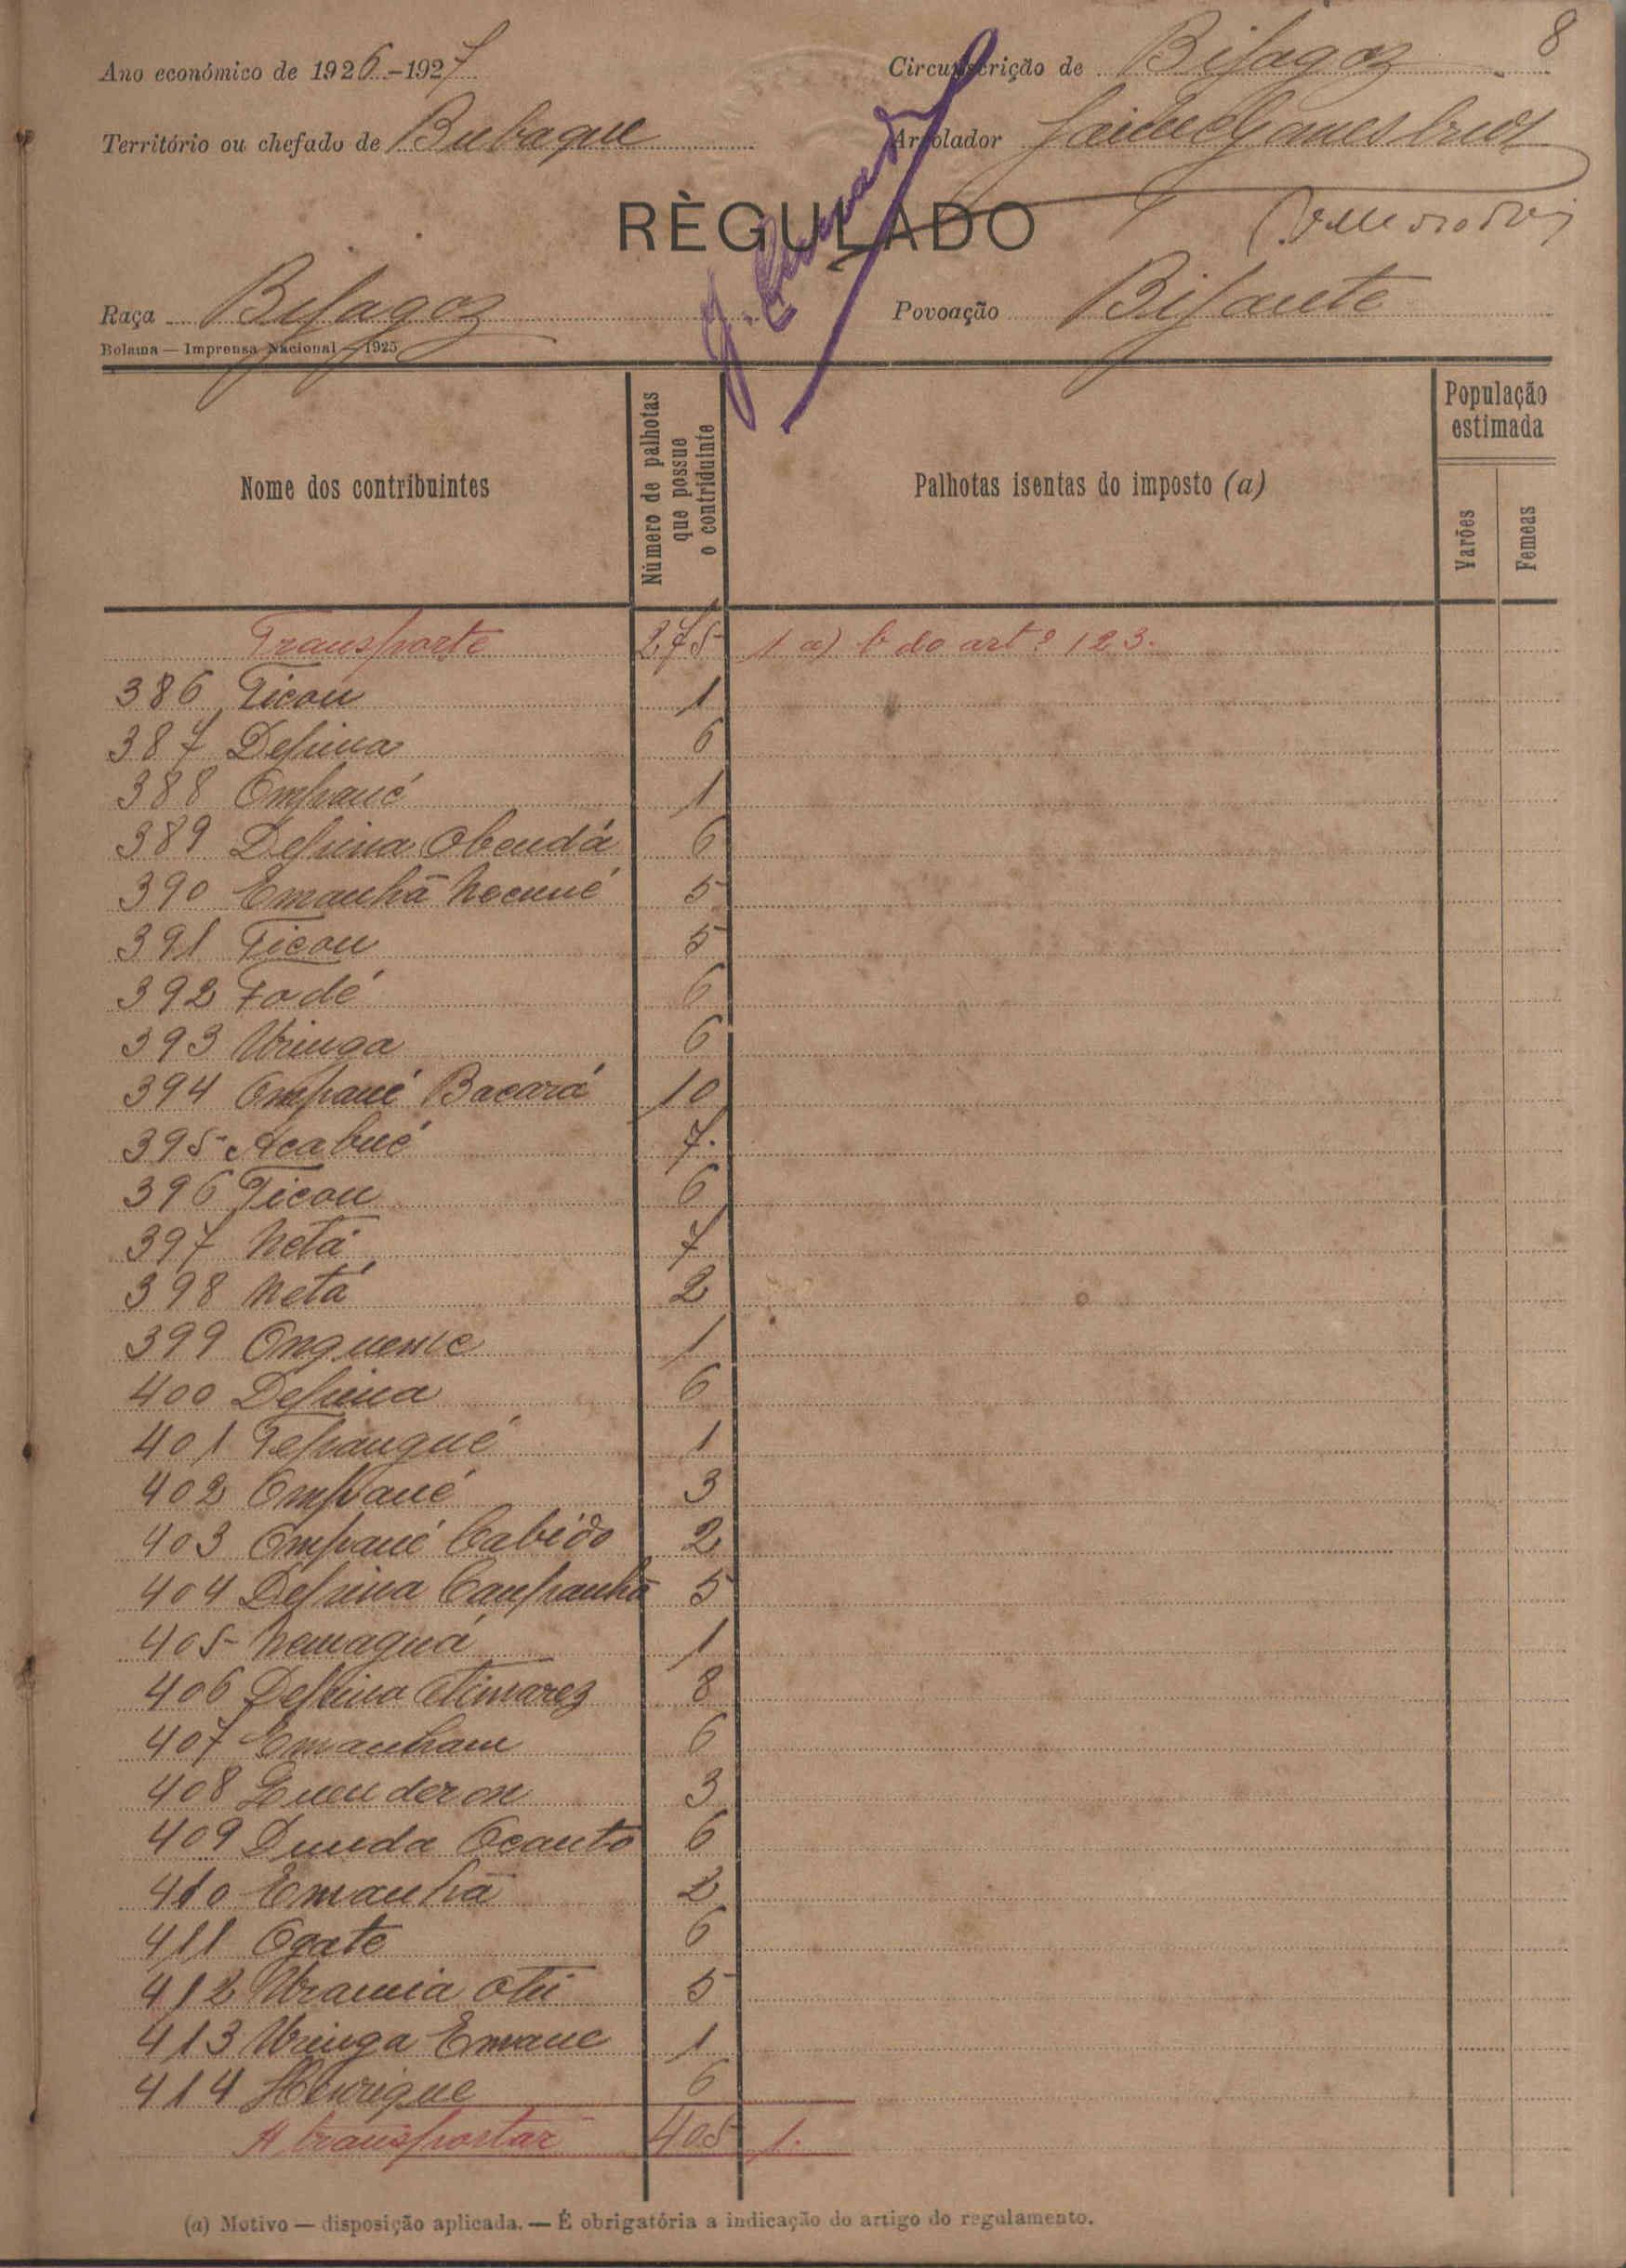 8
Ano económico de 1926-1927 Circunscrição de Bijagoz
Território ou chefado de Bubaque Arrolador Jaime Gomes
RÈGULADO
Raça Bijagoz Povoação Bijante
Bolama — Imprensa Nacional — 1925
Nome dos contribuintes
Número de palhotas que possue o contriduinte
Palhotas isentas do imposto (a)
População estimada
Varões Femeas
Transporte 275 1 a) b do artº 123.
386 Ticou 1
387 Depina 6
388 Ompané 1
389 Depina Obendá 6
390 Emanhã Necuné 5
391 Ticou 5
392 Fodé 6
393 Uringa 6
394 Ompané Bacará 10
395 Acabué 7.
396 Ticou 6
397 Netá 7
398 Netá 2
399 Onquenne 1
400 Depina 6
401 Tepangué 1
402 Ompané 3
403 Ompané Cabêdo 2
404 Depina Canpanhã 5
405 Nemaguá 1
406 Depina 8
407 Emanham 6
408 3
409 Dunda Ocanto 6
410 Emanhã 2
411 Ogato 6
412 Urania Oti 5
413 Uringa Emane 1
414 Henrique 6
A transportar 405 1.
(a) Motivo — disposição aplicada. — É obrigatória a indicação do artigo do regulamento.